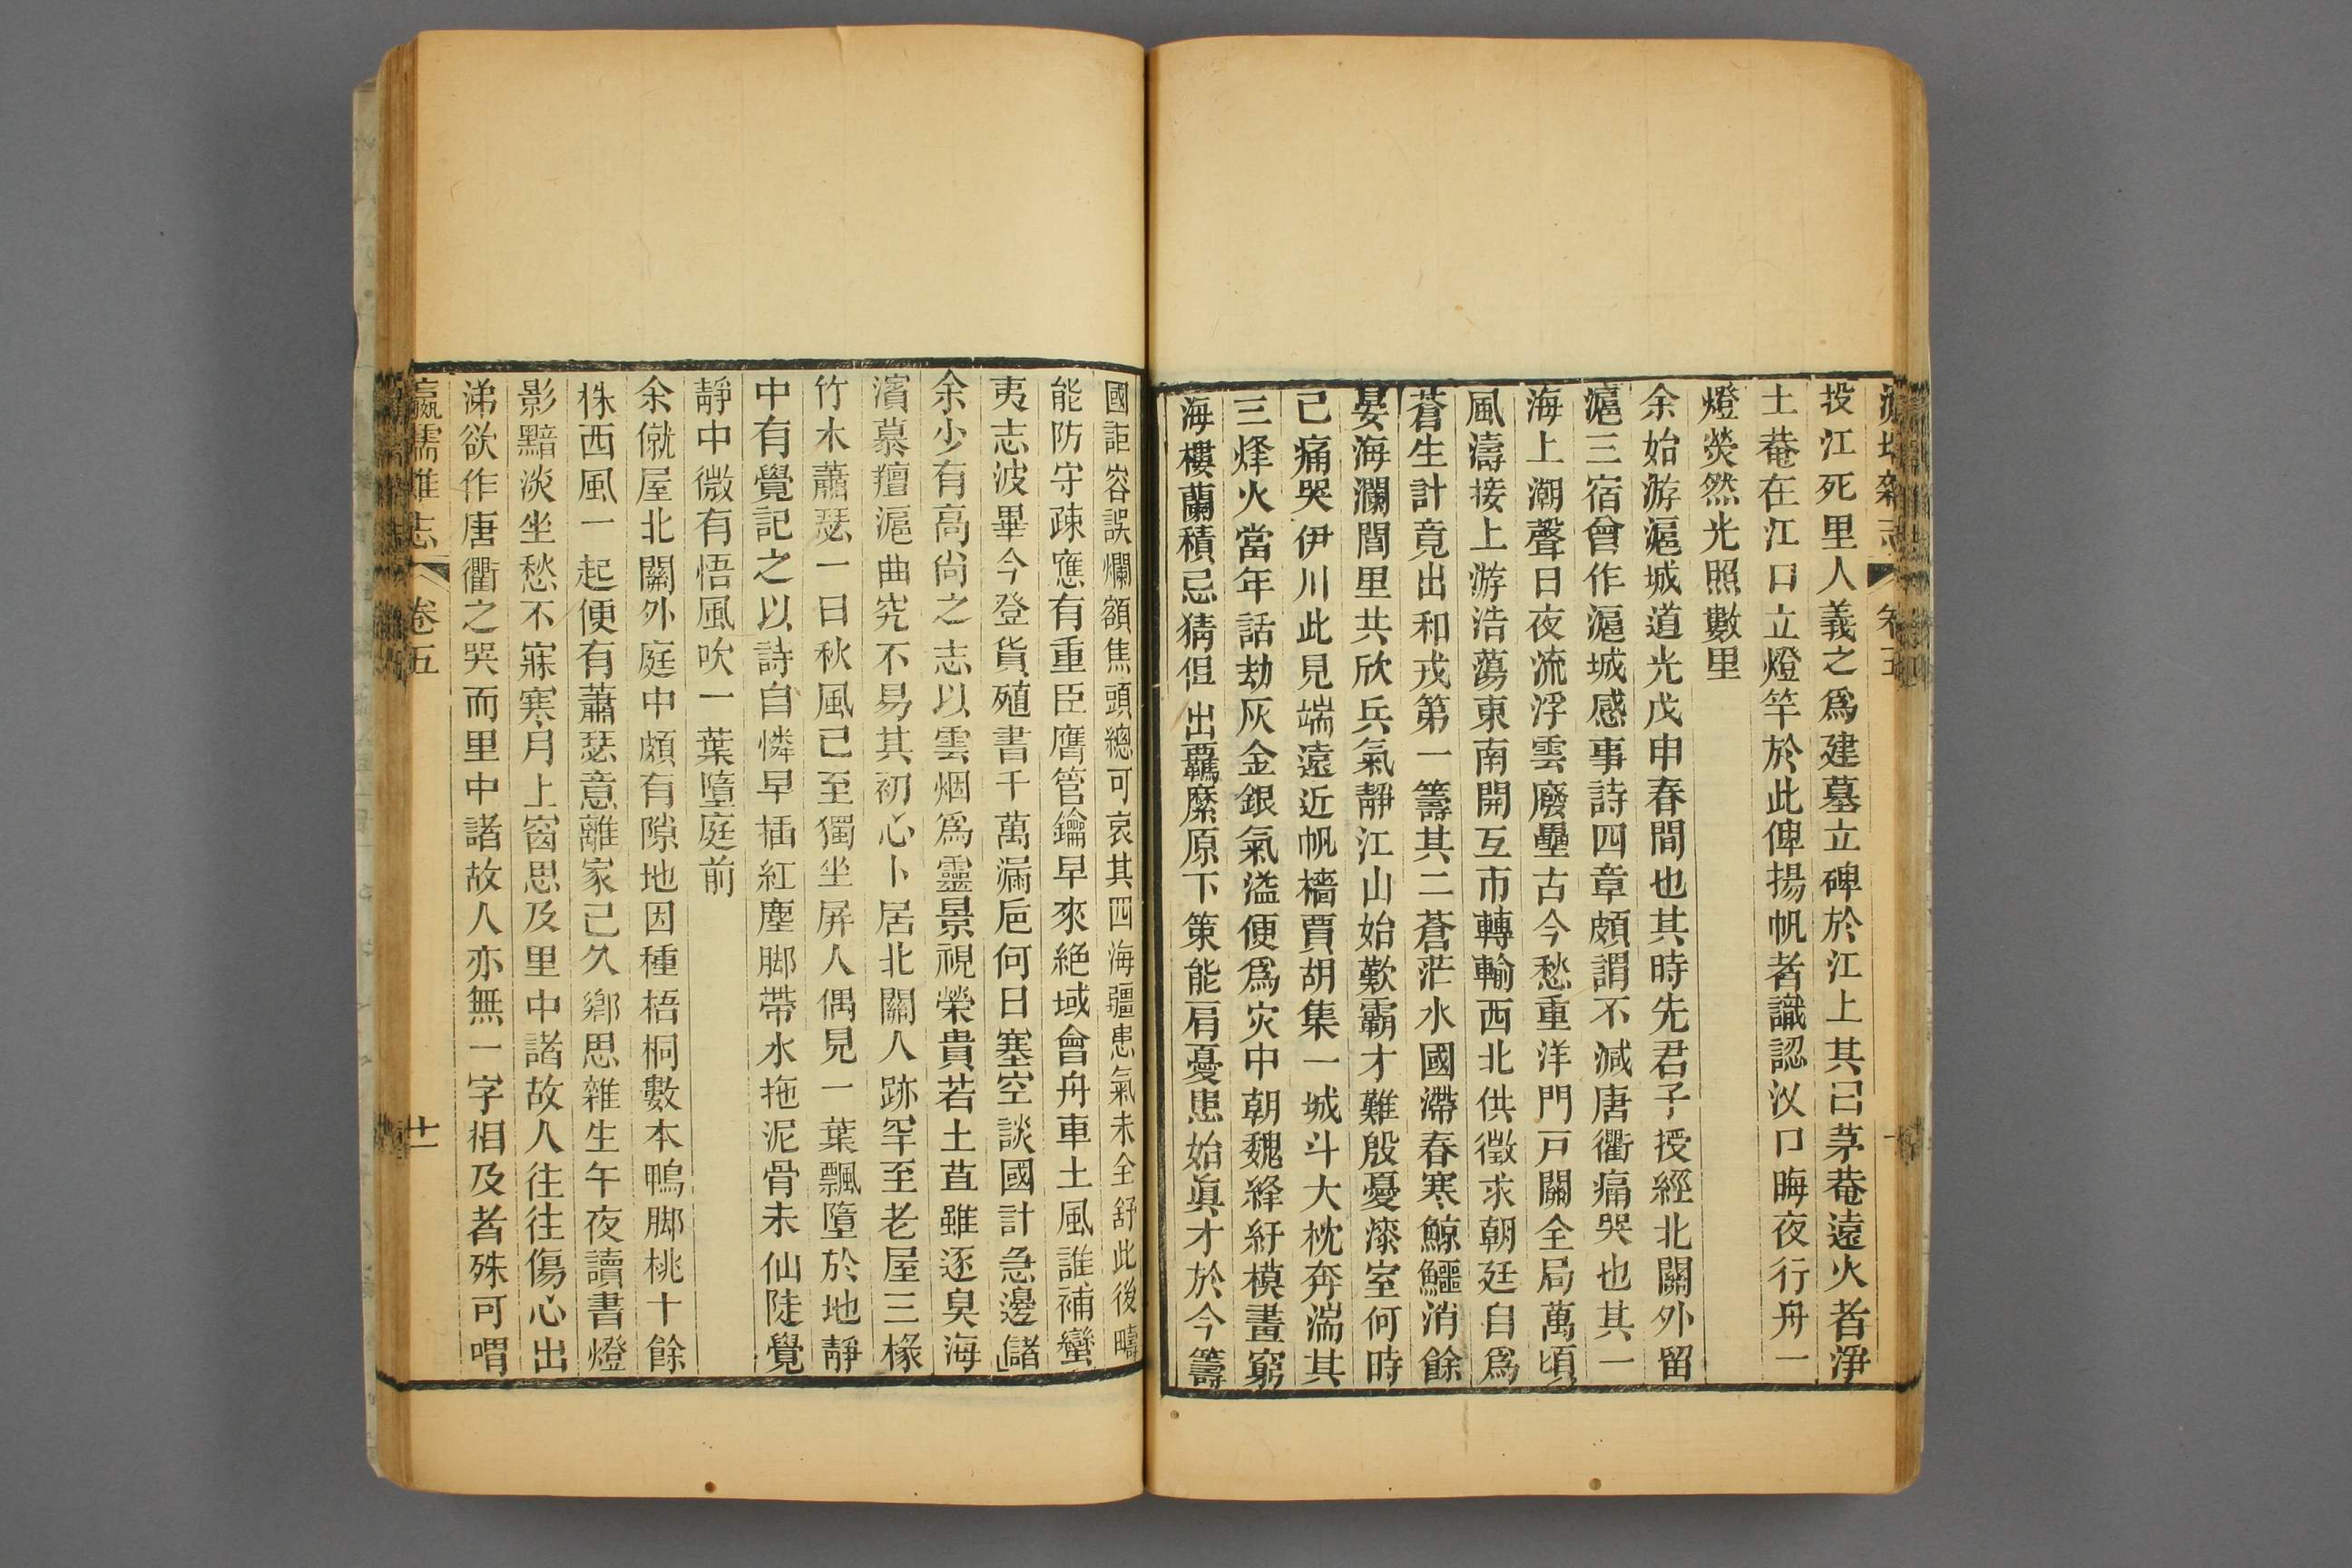 卷五
投江死里人義之爲建墓立碑於江上其曰茅菴遠火者淨
土菴在江口立燈竿於此俾揚帆者識認汊口晦夜行舟一
燈熒然光照數里
余始游滬城道光戊申春間也其時先君子授經北關外留
滬三宿曾作滬城感事詩四章頗謂不減唐衢痛哭也其一
海上潮聲日夜流浮雲廢壘古今愁重洋門戸關全局萬頃
風濤接上游浩蕩東南開互市轉輸西北供徵求朝廷自爲
蒼生計竟出和戎第一籌其二蒼茫水國滯春寒鯨鱷消餘
晏海瀾閭里共欣兵氣靜江山始歎霸才難殷憂漆室何時
已痛哭伊川此見端遠近帆檣賈胡集一城斗大枕奔湍其
三烽火當年話劫灰金銀氣溢便爲灾中朝魏絳紆模畫窮
海樓蘭積忌猜但出羈縻原下策能肩憂患始眞才於今籌
國詎容誤爛額焦頭總可哀其四海疆患氣未全舒此後疇
能防守疎應有重臣膺管鑰早來絶域會舟車土風誰補蠻
夷志波畢今登貨殖書千萬漏巵何日塞空談國計急邊儲
余少有高尙之志以雲烟爲靈景視榮貴若土苴雖逐臭海
濱慕羶滬曲究不易其初心卜居北關人跡罕至老屋三椽
竹木蕭瑟一日秋風已至獨坐屛人偶見一葉飄墮於地靜
中有覺記之以詩自憐早插紅塵脚帶水拖泥骨未仙陡覺
靜中微有悟風吹一葉墮庭前
余僦屋北關外庭中頗有隙地因種梧桐數本鴨脚桃十餘
株西風一起便有蕭瑟意離家已久鄉思雜生午夜讀書燈
影黯淡坐愁不寐寒月上窗思及里中諸故人往往傷心出
涕欲作唐衢之哭而里中諸故人亦無一字相及者殊可喟
瀛壖雜志 卷五 廿一